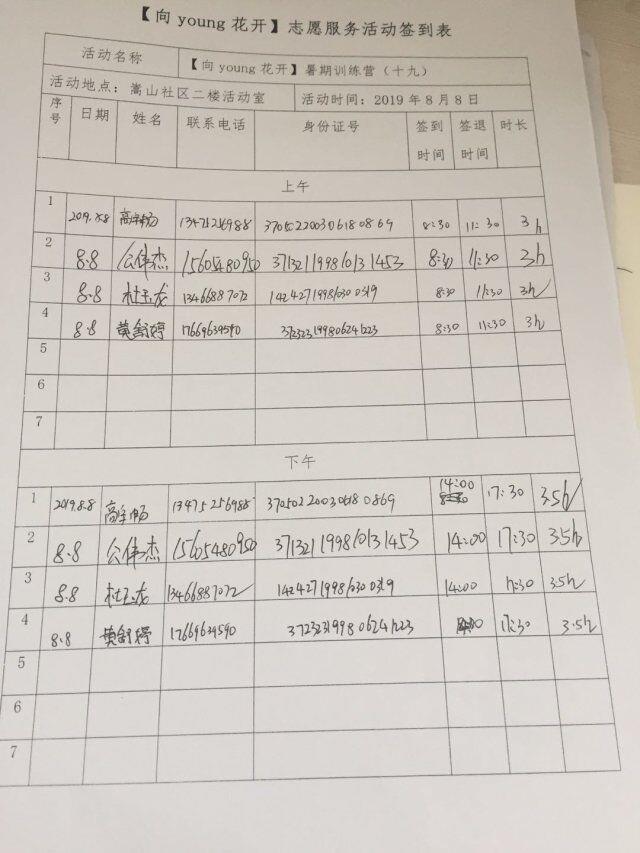 【向 young 花开】志愿服务活动签到表
活动名称 【向 young 花开】暑期训练营（十九）
活动地点：嵩山社区二楼活动室 活动时间：2019 年 8 月 8 日
序号 日期 姓名 联系电话 身份证号 签到时间 签退时间 时长
上午
1 370502200306180869 8:30 11:30 3h
2 8.8 公伟杰 15605480950 371321199810131453 8:30 11:30 3h
3 8.8 杜玉龙 13466887072 142427199810300319 8:30 11:30 3h
4 8.8 17669639590 372323199806241223 8:30 11:30 3h
5
6
7
下午
1 2019.8.8 13475256988 370502200306180869 14:00 17:30 3.5h
2 8.8 公伟杰 15605480950 371321199810131453 14:00 17:30 3.5h
3 8.8 杜玉龙 13466887072 142427199810300319 14:00 17:30 3.5h
4 8.8 17669639590 372323199806241223 17:30 3.5h
5
6
7